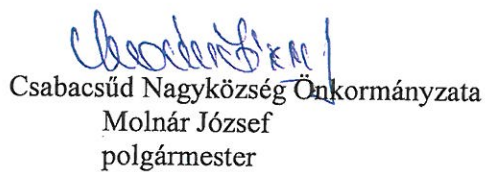 Csabacsűd Nagyközség Önkormányzata
Molnár József
polgármester